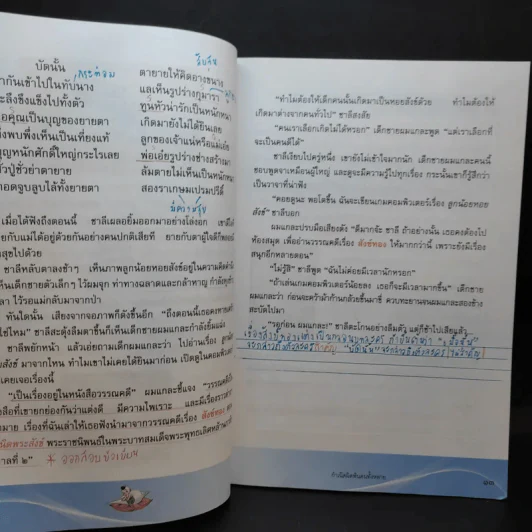 บัดนั้น
ตายายให้คิดอางขนาง
กระท่อม
ากันเข้าไปในทับนาง
แลเห็นรูปร่างกุมารา
ะลึงขึงแข็งไปทั้งตัว
ทูนหัวน่ารักเป็นหนักหนา
อคุณเป็นบุญของยายตา
เกิดมายังไม่ได้ยินเลย
งพบพึ่งเห็นเป็นเที่ยงแท้
ลูกของเจ้าแน่หรือแม่เอ๋ย
บุญหนักศักดิ์ใหญ่กระไรเลย
พ่อเอ๋ยรูปร่างช่างสำรา
ลัมตายไม่เห็นเป็นหนัก
กอดจูบลูบไล้ทั้งยายตา
สองราเกษมเปรมปรีดิ์
มีความสุข
เมื่อได้ฟังถึงตอนนี้ ชาลีเผลอยิ้มออกมาอย่างโล่งอก
ยกับแม่ได้อยู่ด้วยกันอย่างคนปกติเสียที ยายกับตาผู้ใจดีก็พลอย
สุขไปด้วย
ชาลีหลับตาลงช้าๆ เห็นภาพลูกน้อยหอยสังข์อยู่ในความคิดคำ
เห็นเด็กชายตัวเล็กๆ ไว้ผมจุก ท่าทางฉลาดและกล้าหาญ กำลัง
ลา ไว้รอแม่กลับมาจากป่า
ทันใดนั้น เสียงจากจอภาพก็ดังขึ้นอีก "ถึงตอนนี้เธอคงทราบ
ใช่ไหม" ชาลีสะดุ้งลืมตาขึ้นก็เห็นเด็กชายผมแกละกำลังยิ้มแฉ่ง
ชาลีพยักหน้า แล้วเอ่ยถามเด็กผมแกละว่า ไปอ่านเรื่อง
สังข์ มาจากไหน ทำไมเขาไม่เคยได้ยินมาก่อน เปิดดูในคอมพิวเตอร์
เคยเจอเรื่องนี้
"เป็นเรื่องอยู่ในหนังสือวรรณคดี" ผมแกละชี้แจง "วรรณคดี
งสือที่เขายกย่องกันว่าแต่งดี มีความไพเราะ และมีเรื่องราว
มาย เรื่องที่ฉันเล่าให้เธอฟังนำมาจากวรรณคดีเรื่อง สังข์ทอง
นิดพระสังข์ พระราชนิพนธ์ในพระบาทสมเด็จพระพุทธเลิศหล้า
าลที่ ๒"
* ออกสอบข้อเขียน
"ทำไมต้องให้เด็กคนนั้นเกิดมาเป็นหอยสังข์ด้วย ทำไมต้องให้
เกิดมาต่างจากคนทั่วไป" ชาลีสงสัย
"คนเราเลือกเกิดไม่ได้หรอก" เด็กชายผมแกละพูด "แต่เราเลือกที่
จะเป็นคนดีได้"
ชาลีเงียบไปครู่หนึ่ง เขายังไม่เข้าใจมากนัก เด็กชายผมแกละคนนี้
ชอบพูดจาเหมือนผู้ใหญ่ และดูจะมีความรู้ไปทุกเรื่อง กระนั้นเขาก็รู้สึกว่า
เป็นวาจาที่น่าฟัง
"คอยดูนะ พอโตขึ้น ฉันจะเขียนเกมคอมพิวเตอร์เรื่อง ลูกน้อยหอย
สังข์" ชาลีบอก
ผมแกละปรบมือเสียงดัง "ดีมากจ้ะ ชาลี ถ้าอย่างนั้น เธอคงต้องไป
ห้องสมุด เพื่ออ่านวรรณคดีเรื่อง สังข์ทอง ให้มากกว่านี้ เพราะยังมีเรื่อง
สนุกอีกหลายตอน"
"ไม่รู้สิ" ชาลีพูด "ฉันไม่ค่อยมีเวลานักหรอก"
"ถ้าเล่นเกมคอมพิวเตอร์น้อยลง เธอก็จะมีเวลามากขึ้น" เด็กชาย
ผมแกละว่า ก่อนจะคว้าม้าก้านกล้วยขึ้นมาขี่ ควบทะยานจนผมแกละสองข้าง
สะบัดไปมา
"รอก่อน ผมแกละ!" ชาลีตะโกนอย่างลืมตัว แต่ก็ช้าไปเสียแล้ว
กำเนิดผิดพ้นคนทั้งหลาย